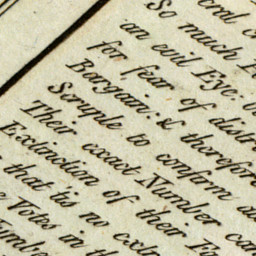 So much
an evil Eye:
for fear of distr
Bargain: & therefore
Scruple to confirm
Their exact Number can
Extinction of their
that 'tis no extr
Votes in th